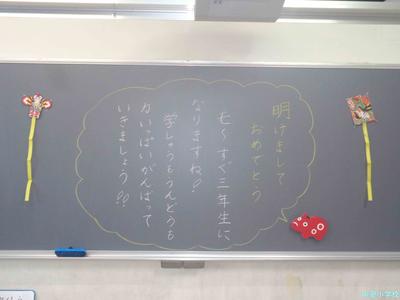 明けまして
おめでとう
も〜すぐ三年生に
なりますね!
学しゅうもうんどうも
いっぱいがんばって
いきましょう!!